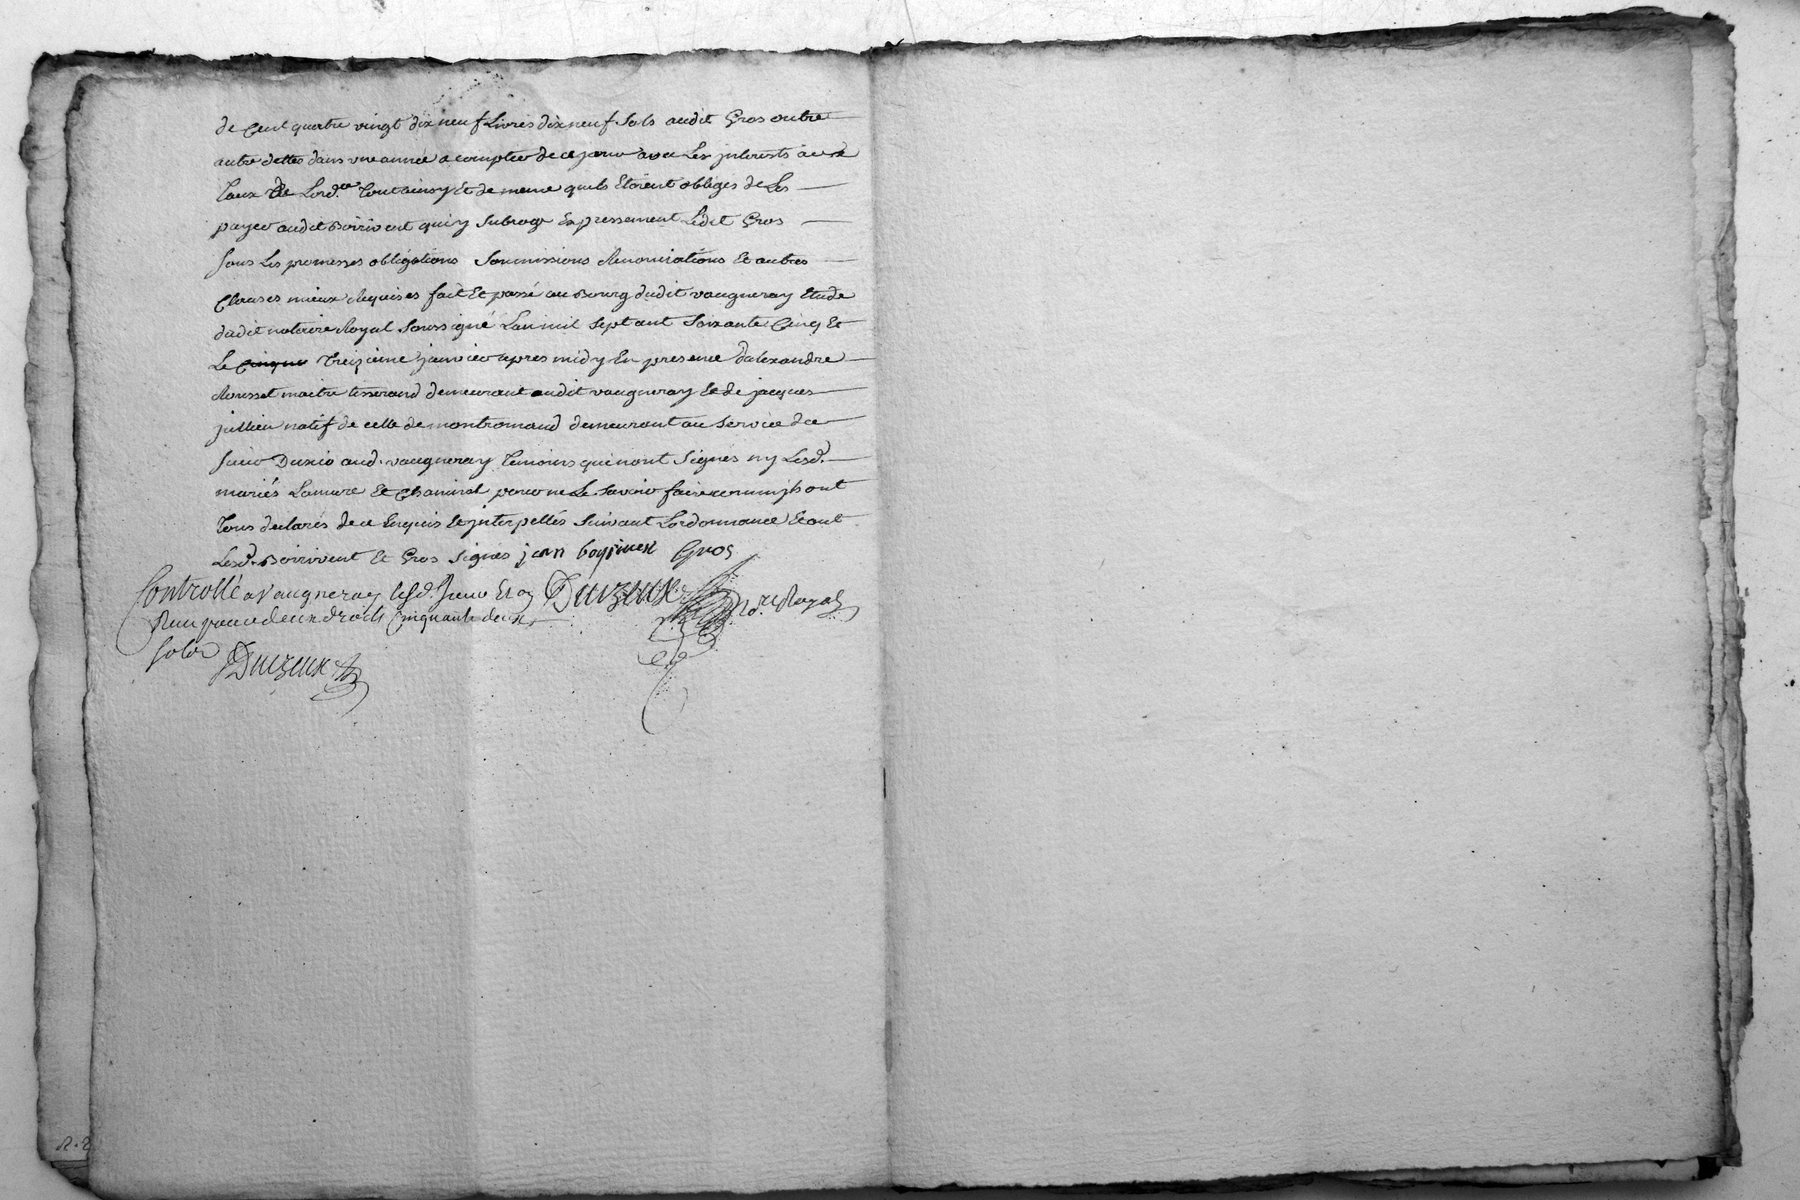 de Cent quatre vingt dix neuf Livres dix neuf sols audit Gros outre
autre dettes dans une année a compter de ce jour avec Les jnterests au
taux de Lord.ce tout ainsy Et de meme quils Etoient obligés de Les
payer audit Boirivent qui y subroge Expressement Ledit Gros
sous Les promesses obligations soumissions Renonciations Et autres
Clauses mieux Requises fait Et passé au Bourg dudit vaugneray Etude
dudit notaire Royal soussigné Lan mil sept cent soixante Cinq Et
Le Cinquie treizieme janvier apres midy En presence dalexandre
Rousset maitre tisserand demeurant audit vaugneray Et de jacques
jullien natif de celle de montromand demeurant au service du
sieur audt. vaugneray temoins qui nont signés ny Lesd.
mariés Lamure Et pour ne Le savoir faire comm jls ont
tous declarés de ce Enquis Et jnterpellés suivant Lordonnance Et ont
Lesd. Boirivent Et Gros signés jean Gros
Controllé a Vaugneray lesd. jour Et an
Reçu pour deux droits Cinquante deux No.re Royal
sols